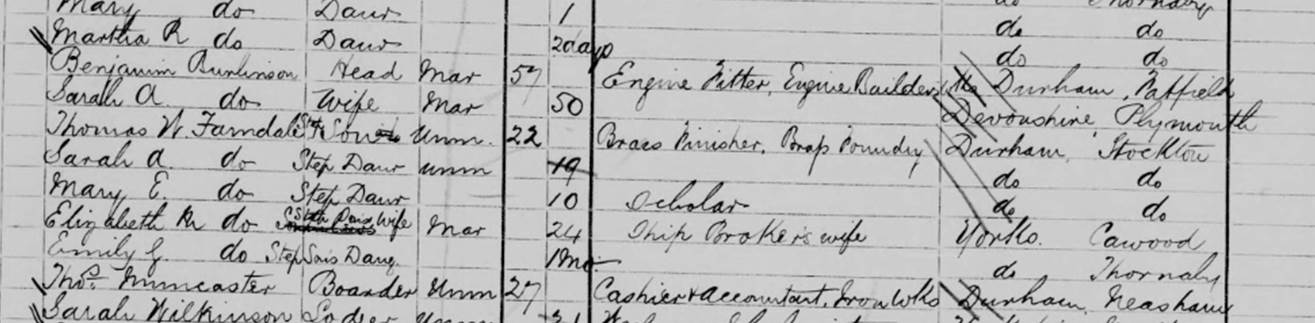 Mary do Daur 1 do Thornaby
Martha R do Daur 2 days do do
Benjamin Burlinson Head Mar 57 Engine Fitter, Engine Builders Durham, Fatfield do do
Sarah A. do Wife Mar 50 Devonshire Plymouth
Thomas W. Farndale Step Son Unm. 22 Brass Finisher, Brass Foundry Durham, Stockton
Sarah A. do Step Daur unm 19 do do
Mary E. do Step Daur 10 Scholar do do
Elizabeth M do Wife Mar 24 Ship Broker's wife Yorks. Cawood
Emily G. do Step Sons Daug. 1 mo do Thornaby
Thos. Muncaster Boarder Unm 27 Cashier & Accountant, Iron Wks Durham, Neasham
Sarah Wilkinson Lodger